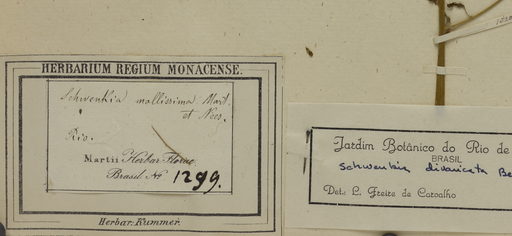 HERBARIUM REGIUM MONACENSE.
Schwenkia mollissima Mart.
et Nees.
Rio.
Martii Herbar. Florae
Brasil. No 1299.
Herbar. Kummer.
Jardim Botânico do Rio de
BRASIL
Schwenkia divaricata Be
Det. L. Freire de Carvalho